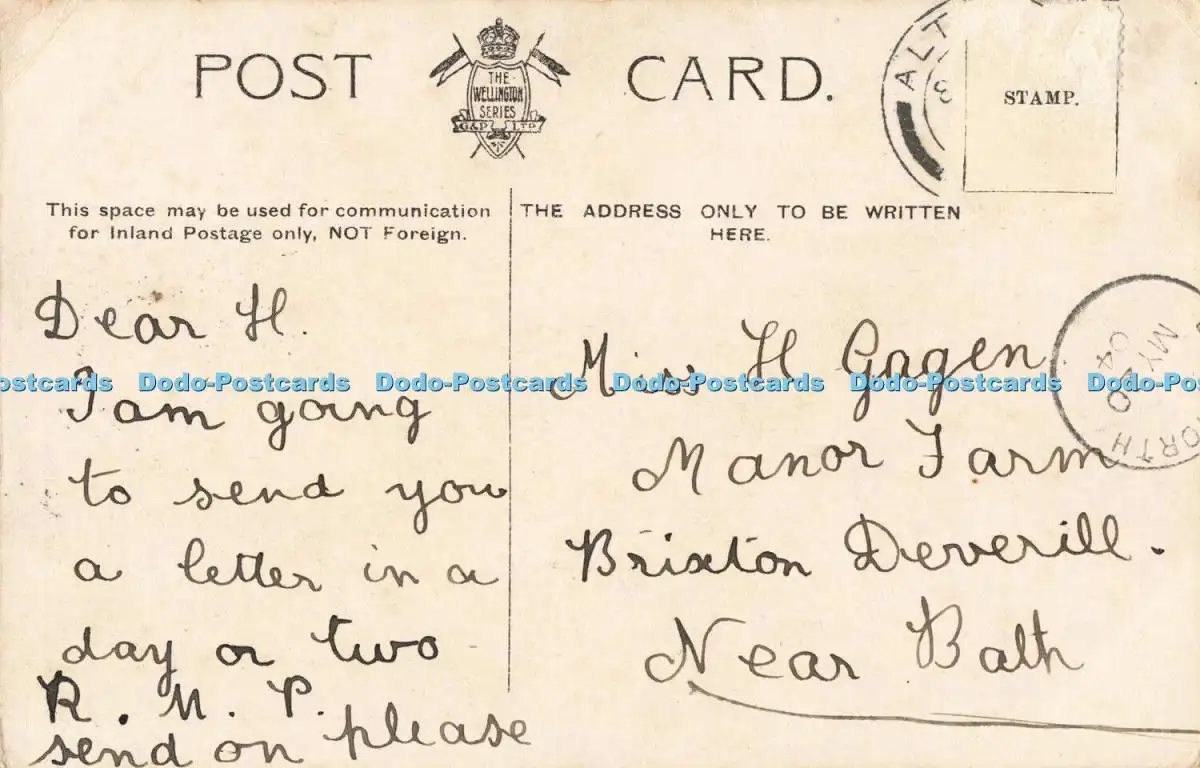 POST CARD.
THE
WELLINGTON
SERIES
G&P LTD
ALT
8
STAMP.
This space may be used for communication
for Inland Postage only, NOT Foreign.
THE ADDRESS ONLY TO BE WRITTEN
HERE.
Dear H.
I am going
to send you
a letter in a
day or two
R. M. P.
send on please
Miss H Gagen
Manor Farm
Brixton Deverill.
Near Bath
MY 30
04
ORTH
Dodo-Postcards Dodo-Postcards Dodo-Postcards Dodo-Postcards